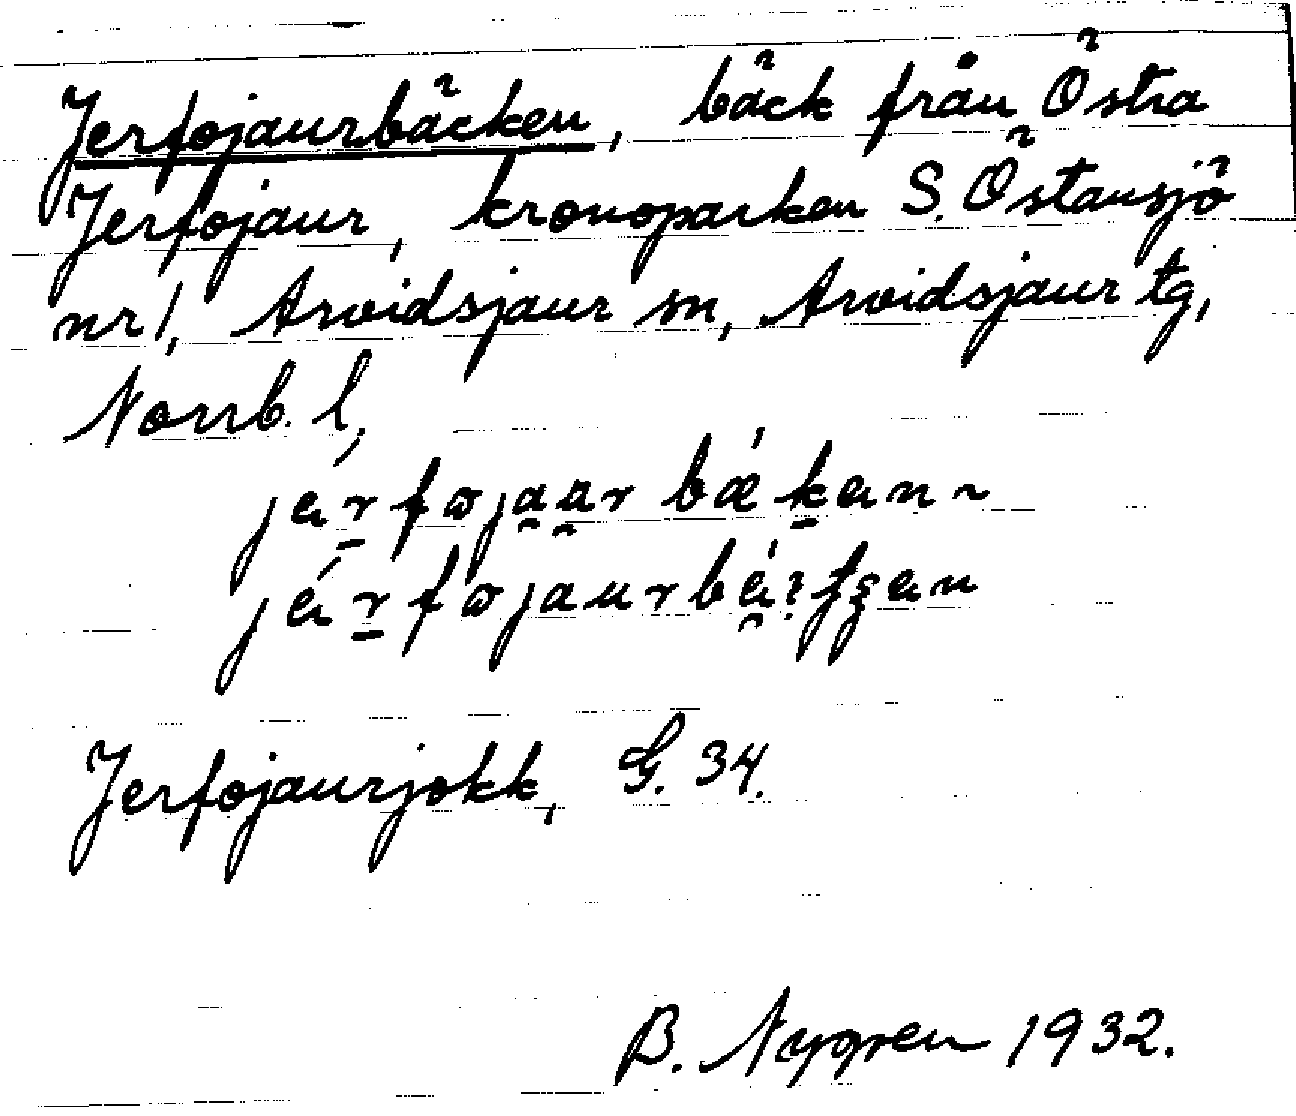 Jerfojaurbäcken, bäck från Östra
Jerfojaur, kronoparken S. Östansjö
nr 1, Arvidsjaur sn, Arvidsjaur tg,
Norrb. l,
Jerfojaurjokk, G. 34.
B. Nygren 1932.